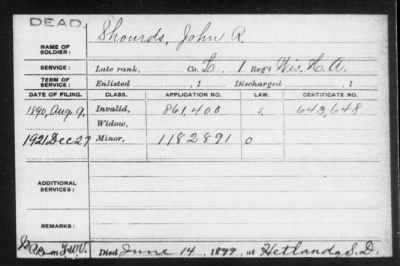 DEAD
NAME OF SOLDIER: Shourds, John R.
SERVICE: Late rank, Co. L. 1 Reg't Wis. H. A.
TERM OF SERVICE: Enlisted , 1 Discharged , 1
DATE OF FILING. CLASS. APPLICATION NO. LAW. CERTIFICATE NO.
1890, Aug. 9. Invalid, 861,400 643,648
Widow,
1921 Dec 27 Minor, 1182891 0
ADDITIONAL SERVICES:
REMARKS:
Died June 14, 1899, at Hetland, S.D.